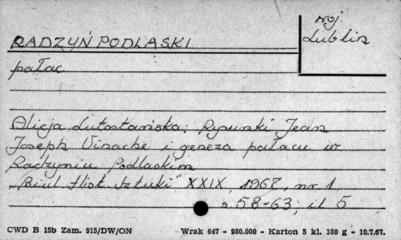 woj.
Lublin
RADZYŃ PODLASKI
pałac
Alicja Lutostańska: Rysunki Jean
Joseph Vinache i geneza pałacu w
Radzyniu Podlaskim
"Biul. Hist. Sztuki" XXIX, 1967, nr 1
s 58-63; il 5
CWD B 15b Zam. 915/DW/ON Wrak 667 - 980.000 - Karton 5 kl. 180 g - 10.7.67.